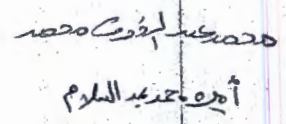 محمد عبد الرؤوف محمد
أميره محمد عبد السلام